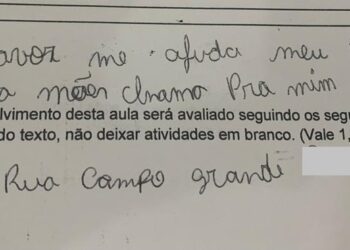 avor me ajuda meu
a mães chama Pra mim
lvimento desta aula será avaliado seguindo os segu
do texto, não deixar atividades em branco. (Vale 1,
Rua Campo grande